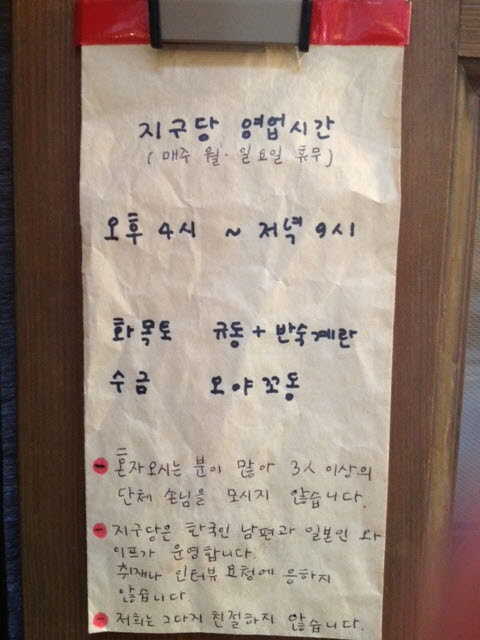 지구당 영업시간
(매주 월·일요일 휴무)
오후 4시 ~ 저녁 9시
화목토 규동+반숙계란
수금 오야꼬동
- 혼자오시는 분이 많아 3人 이상의
단체 손님을 모시지 않습니다.
- 지구당은 한국인 남편과 일본인 와
이프가 운영합니다.
취재나 인터뷰 요청에 응하지
않습니다.
- 저희는 그다지 친절하지 않습니다.